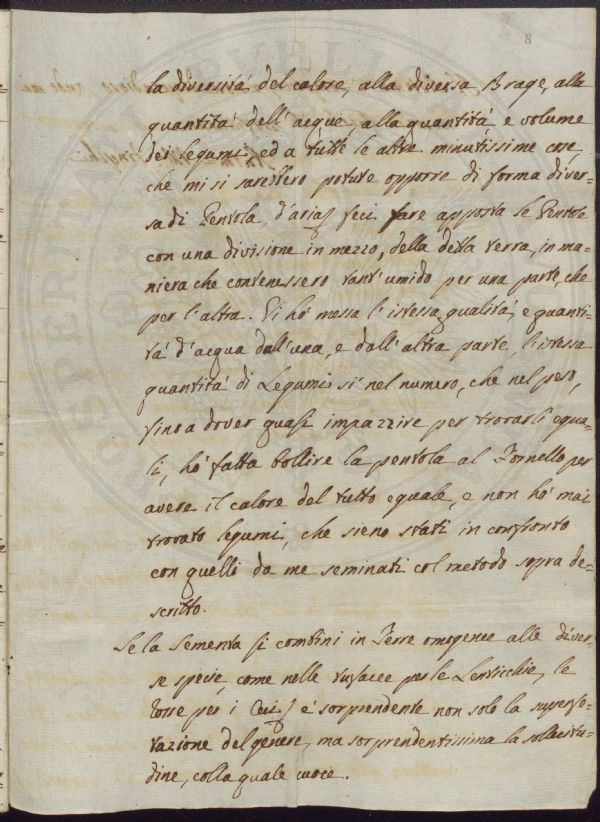 8
la diversità del calore, alla diversa Brage, alla
quantità dell'acque, alla quantità e volume
dei Legumi, ed a tutte le altre minutissime cose,
che mi si sarebbero potute opporre di forma diver=
sa di Pentola, d'aria feci fare apposta le Pentole
con una divisione in mezzo, della detta terra, in ma=
niera che contenessero tant'umido per una parte, che
per l'altra. Vi hò messa l'istessa qualità, e quanti=
tà d'acqua dall'una, e dall'altra parte, l'istessa
quantità di Legumi sì nel numero, che nel peso,
fino a dover quasi impazzire per trovarli equa=
li, hò fatta bollire la pentola al Fornello per
avere il calore del tutto equale, e non hò mai
trovato legumi, che sieno stati in confronto
con quelli da me seminati col metodo sopra de=
scritto.
Se la Sementa si combini in Terre omogenee alle diver=
se specie, come nelle tufacee per le Lenticchie, le
rosse per i Ceci è sorprendente non solo la
del genere, ma sorprendentissima la sollecitu=
dine, colla quale cuoce.